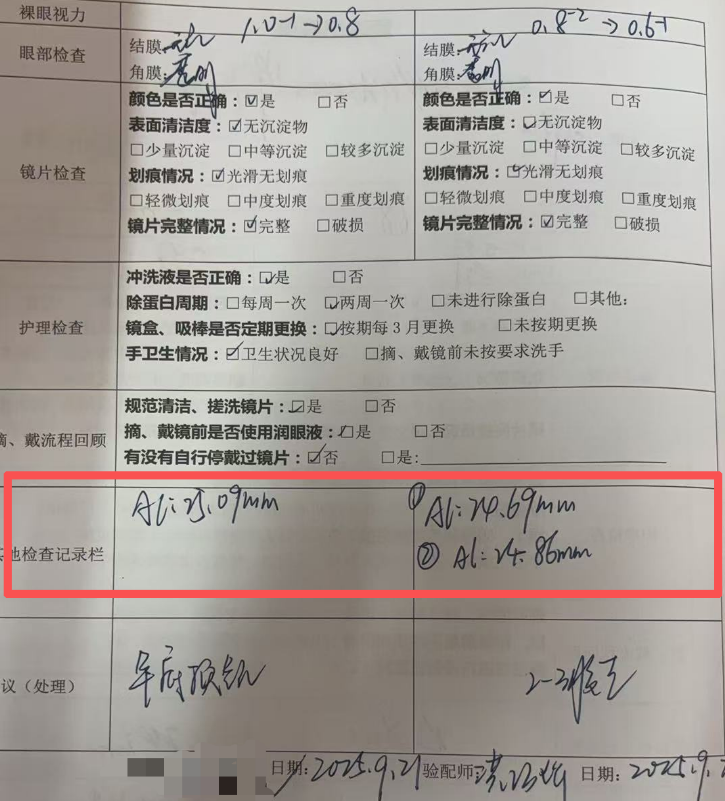 裸眼视力 1.0⁻¹→0.8 0.8⁻²→0.6⁻¹
眼部检查 结膜: 结膜:
角膜:透明 角膜:透明
镜片检查
颜色是否正确:☑是 □否
表面清洁度:☑无沉淀物
□少量沉淀 □中等沉淀 □较多沉淀
划痕情况:☑光滑无划痕
□轻微划痕 □中度划痕 □重度划痕
镜片完整情况:☑完整 □破损
颜色是否正确:☑是 □否
表面清洁度:☑无沉淀物
□少量沉淀 □中等沉淀 □较多沉淀
划痕情况:☑光滑无划痕
□轻微划痕 □中度划痕 □重度划痕
镜片完整情况:☑完整 □破损
护理检查
冲洗液是否正确:☑是 □否
除蛋白周期:□每周一次 ☑两周一次 □未进行除蛋白 □其他:
镜盒、吸棒是否定期更换:☑按期每3月更换 □未按期更换
手卫生情况:☑卫生状况良好 □摘、戴镜前未按要求洗手
摘、戴流程回顾
规范清洁、搓洗镜片:☑是 □否
摘、戴镜前是否使用润眼液:☑是 □否
有没有自行停戴过镜片:☑否 □是:
其他检查记录栏
AL:25.09mm
① AL:24.69mm
② AL:24.86mm
议(处理)
日期:2025.9.21 验配师: 日期:2025.9.2